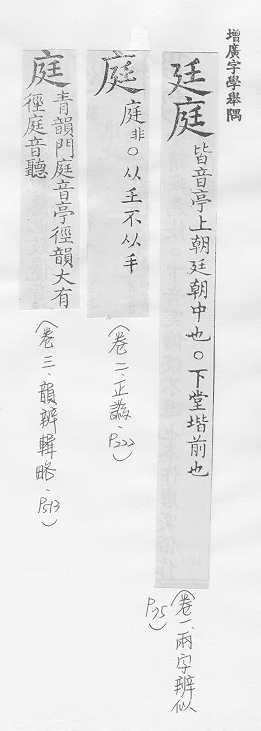 增廣字學舉隅
廷庭 皆音亭上朝廷朝中也。下堂堦前也
(卷一、兩字辨似
P.75)
庭 庭非。从壬不从手
(卷二、正譌、P.222)
庭 青韻門庭音亭徑韻大有
徑庭音聽
(卷三、韻辨輯略、P.513)